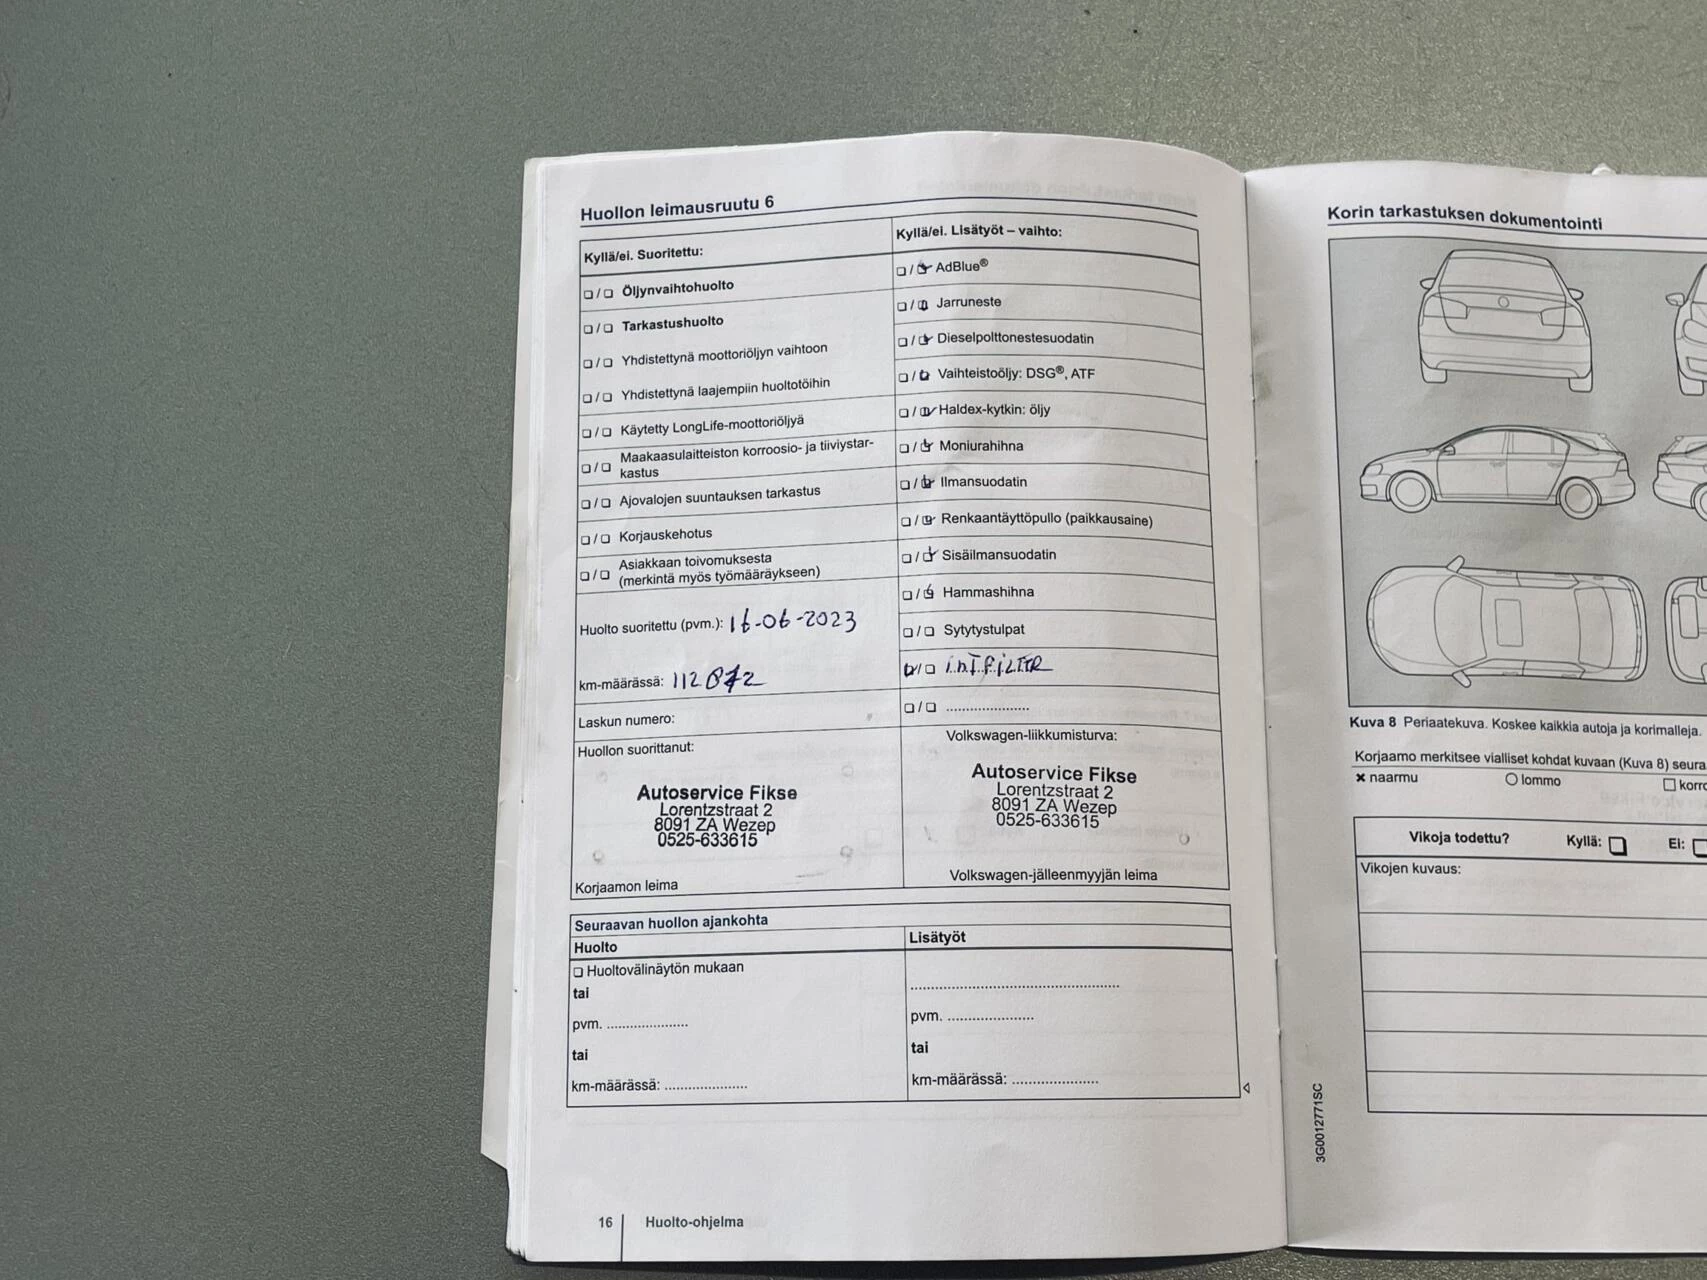 Huollon leimausruutu 6
Kyllä/ei. Suoritettu:
Öljynvaihtohuolto
Tarkastushuolto
Yhdistettynä moottoriöljyn vaihtoon
Yhdistettynä laajempiin huoltotöihin
Käytetty LongLife-moottoriöljyä
Maakaasulaitteiston korroosio- ja tiiviystar-
kastus
Ajovalojen suuntauksen tarkastus
Korjauskehotus
Asiakkaan toivomuksesta
(merkintä myös työmääräykseen)
Huolto suoritettu (pvm.): 16-06-2023
km-määrässä: 112872
Laskun numero:
Huollon suorittanut:
Autoservice Fikse
Lorentzstraat 2
8091 ZA Wezep
0525-633615
Korjaamon leima
Kyllä/ei. Lisätyöt – vaihto:
AdBlue®
Jarruneste
Dieselpolttonestesuodatin
Vaihteistoöljy: DSG®, ATF
Haldex-kytkin: öljy
Moniurahihna
Ilmansuodatin
Renkaantäyttöpullo (paikkausaine)
Sisäilmansuodatin
Hammashihna
Sytytystulpat
int filter
Volkswagen-liikkumisturva:
Autoservice Fikse
Lorentzstraat 2
8091 ZA Wezep
0525-633615
Volkswagen-jälleenmyyjän leima
Seuraavan huollon ajankohta
Huolto
Huoltovälinäytön mukaan
tai
pvm.
tai
km-määrässä:
Lisätyöt
pvm.
tai
km-määrässä:
16 Huolto-ohjelma
Korin tarkastuksen dokumentointi
Kuva 8 Periaatekuva. Koskee kaikkia autoja ja korimalleja.
Korjaamo merkitsee vialliset kohdat kuvaan (Kuva 8) seura
naarmu lommo korro
Vikoja todettu? Kyllä: Ei:
Vikojen kuvaus:
3G0012771SC